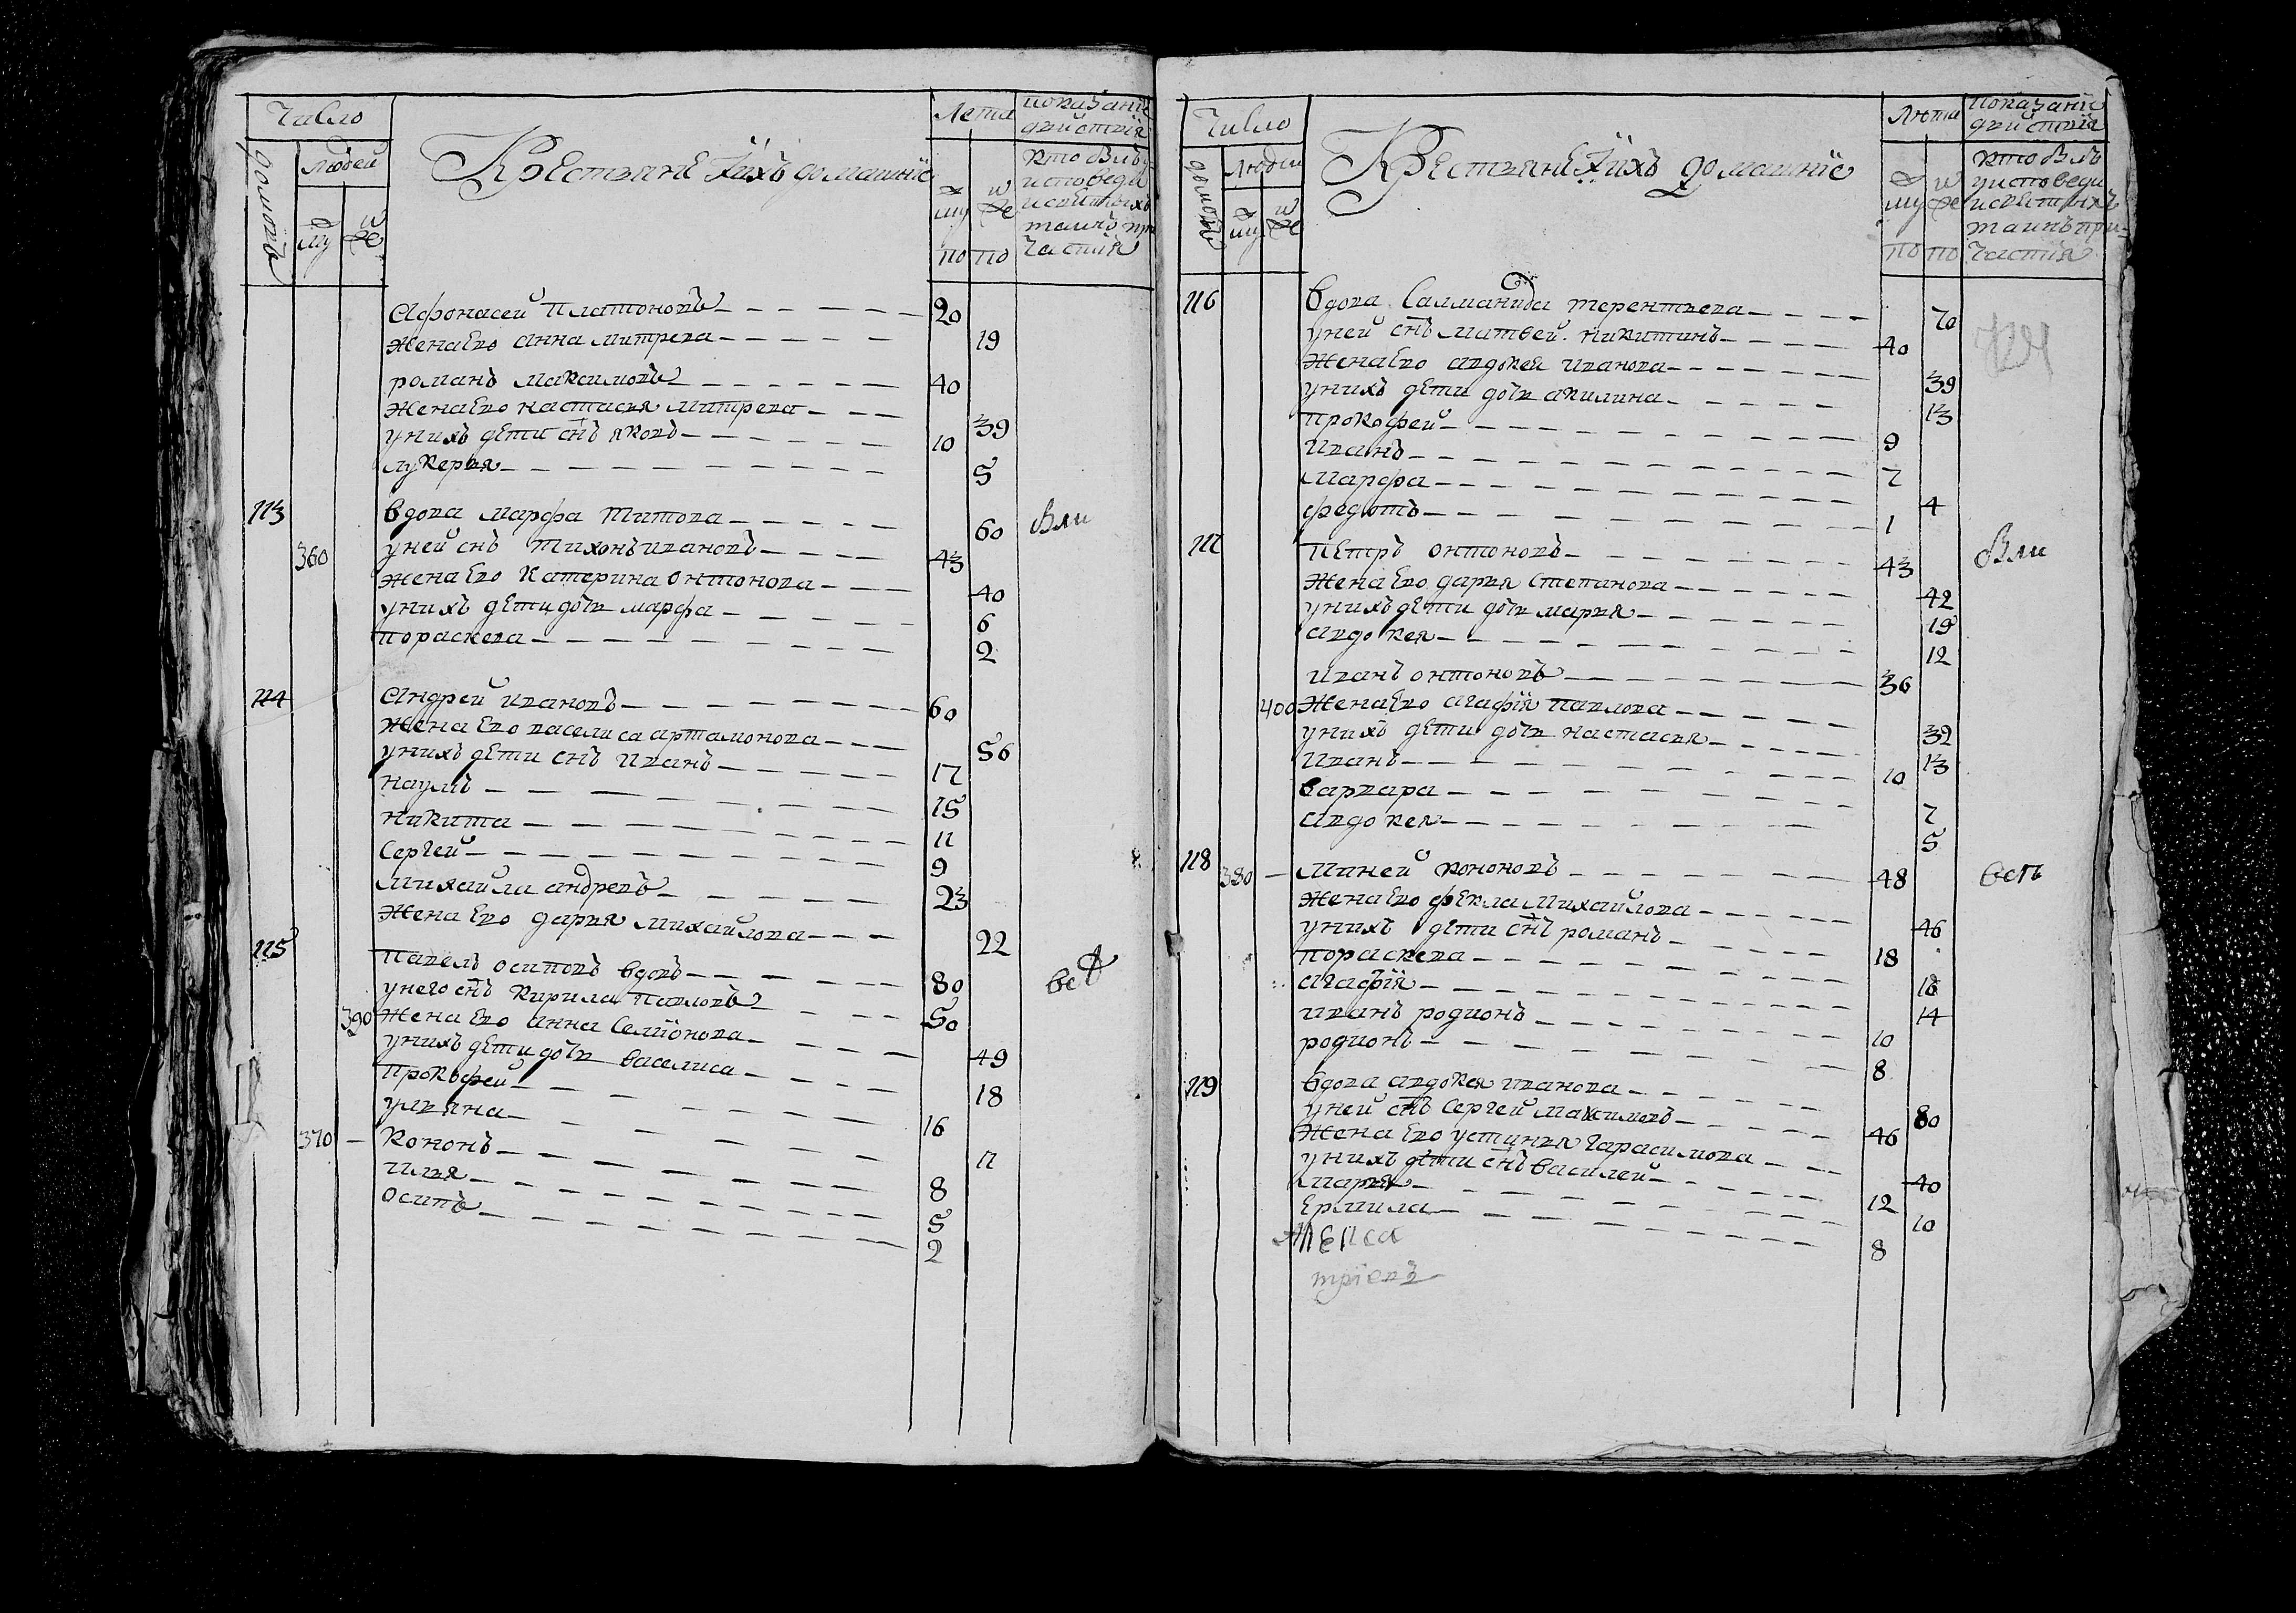 Число
Лета
показание
действия
домовъ
людей
Крестьяне и ихъ домашние
му
же
му
же
кто былъ
у исповеди
и святыхъ
таинъ при
по
по
частия
Афонасей Платоновъ 20
жена ево Анна Митрева 19
романъ Максимовъ 40
жена ево настасья Митрева 39
у нихъ дети снъ яковъ 10
лукерья 5
113 вдова марфа титова 60 Были
360 у ней снъ тихонъ ивановъ 43
жена ево катерина онтонова 40
у нихъ дети дочь марфа 6
пораскева 2
114 Андрей ивановъ 60
жена ево василиса артамонова 56
у нихъ дети снъ иванъ 17
наумъ 15
никита 11
Сергей 9
михайла андревъ 23
жена ево дарья михайлова 22
115 павелъ осиповъ вдовъ 80
у него снъ кирила павловъ 50
390 жена ево анна Семионова 49
у нихъ дети дочь василиса 18
прокофей 16
ульяна 11
370 Кононъ 8
илья 5
осипъ 2
Число
Лета
показание
действия
домовъ
людей
Крестьяне и ихъ домашние
му
же
му
же
кто былъ
у исповеди
и святыхъ
таинъ при-
по
по
частия
116 вдова Салманида терентьева 70
у ней снъ матвей никитинъ 40
жена ево авдокея иванова 39
у нихъ дети дочь акилина 13
прокофей 9
иванъ 7
марфа 4
федотъ 1
117 петръ онтоновъ 43 Были
жена ево дарья степанова 42
у нихъ дети дочь марья 19
авдокея 12
иванъ онтоновъ 36
400 жена ево агафия павлова 32
у нихъ дети дочь настасья 13
иванъ 10
варвара 7
авдокея 5
118 380 миней кононовъ 48
жена ево фекла михайлова 46
у нихъ дети снъ романъ 18
пораскева 16
агафия 14
иванъ родионъ 10
родионъ 8
119 вдова авдокея иванова 80
у ней снъ Сергей максимовъ 46
жена ево устинья гарасимова 40
у нихъ дети снъ василей 12
марья 10
Ермила 8